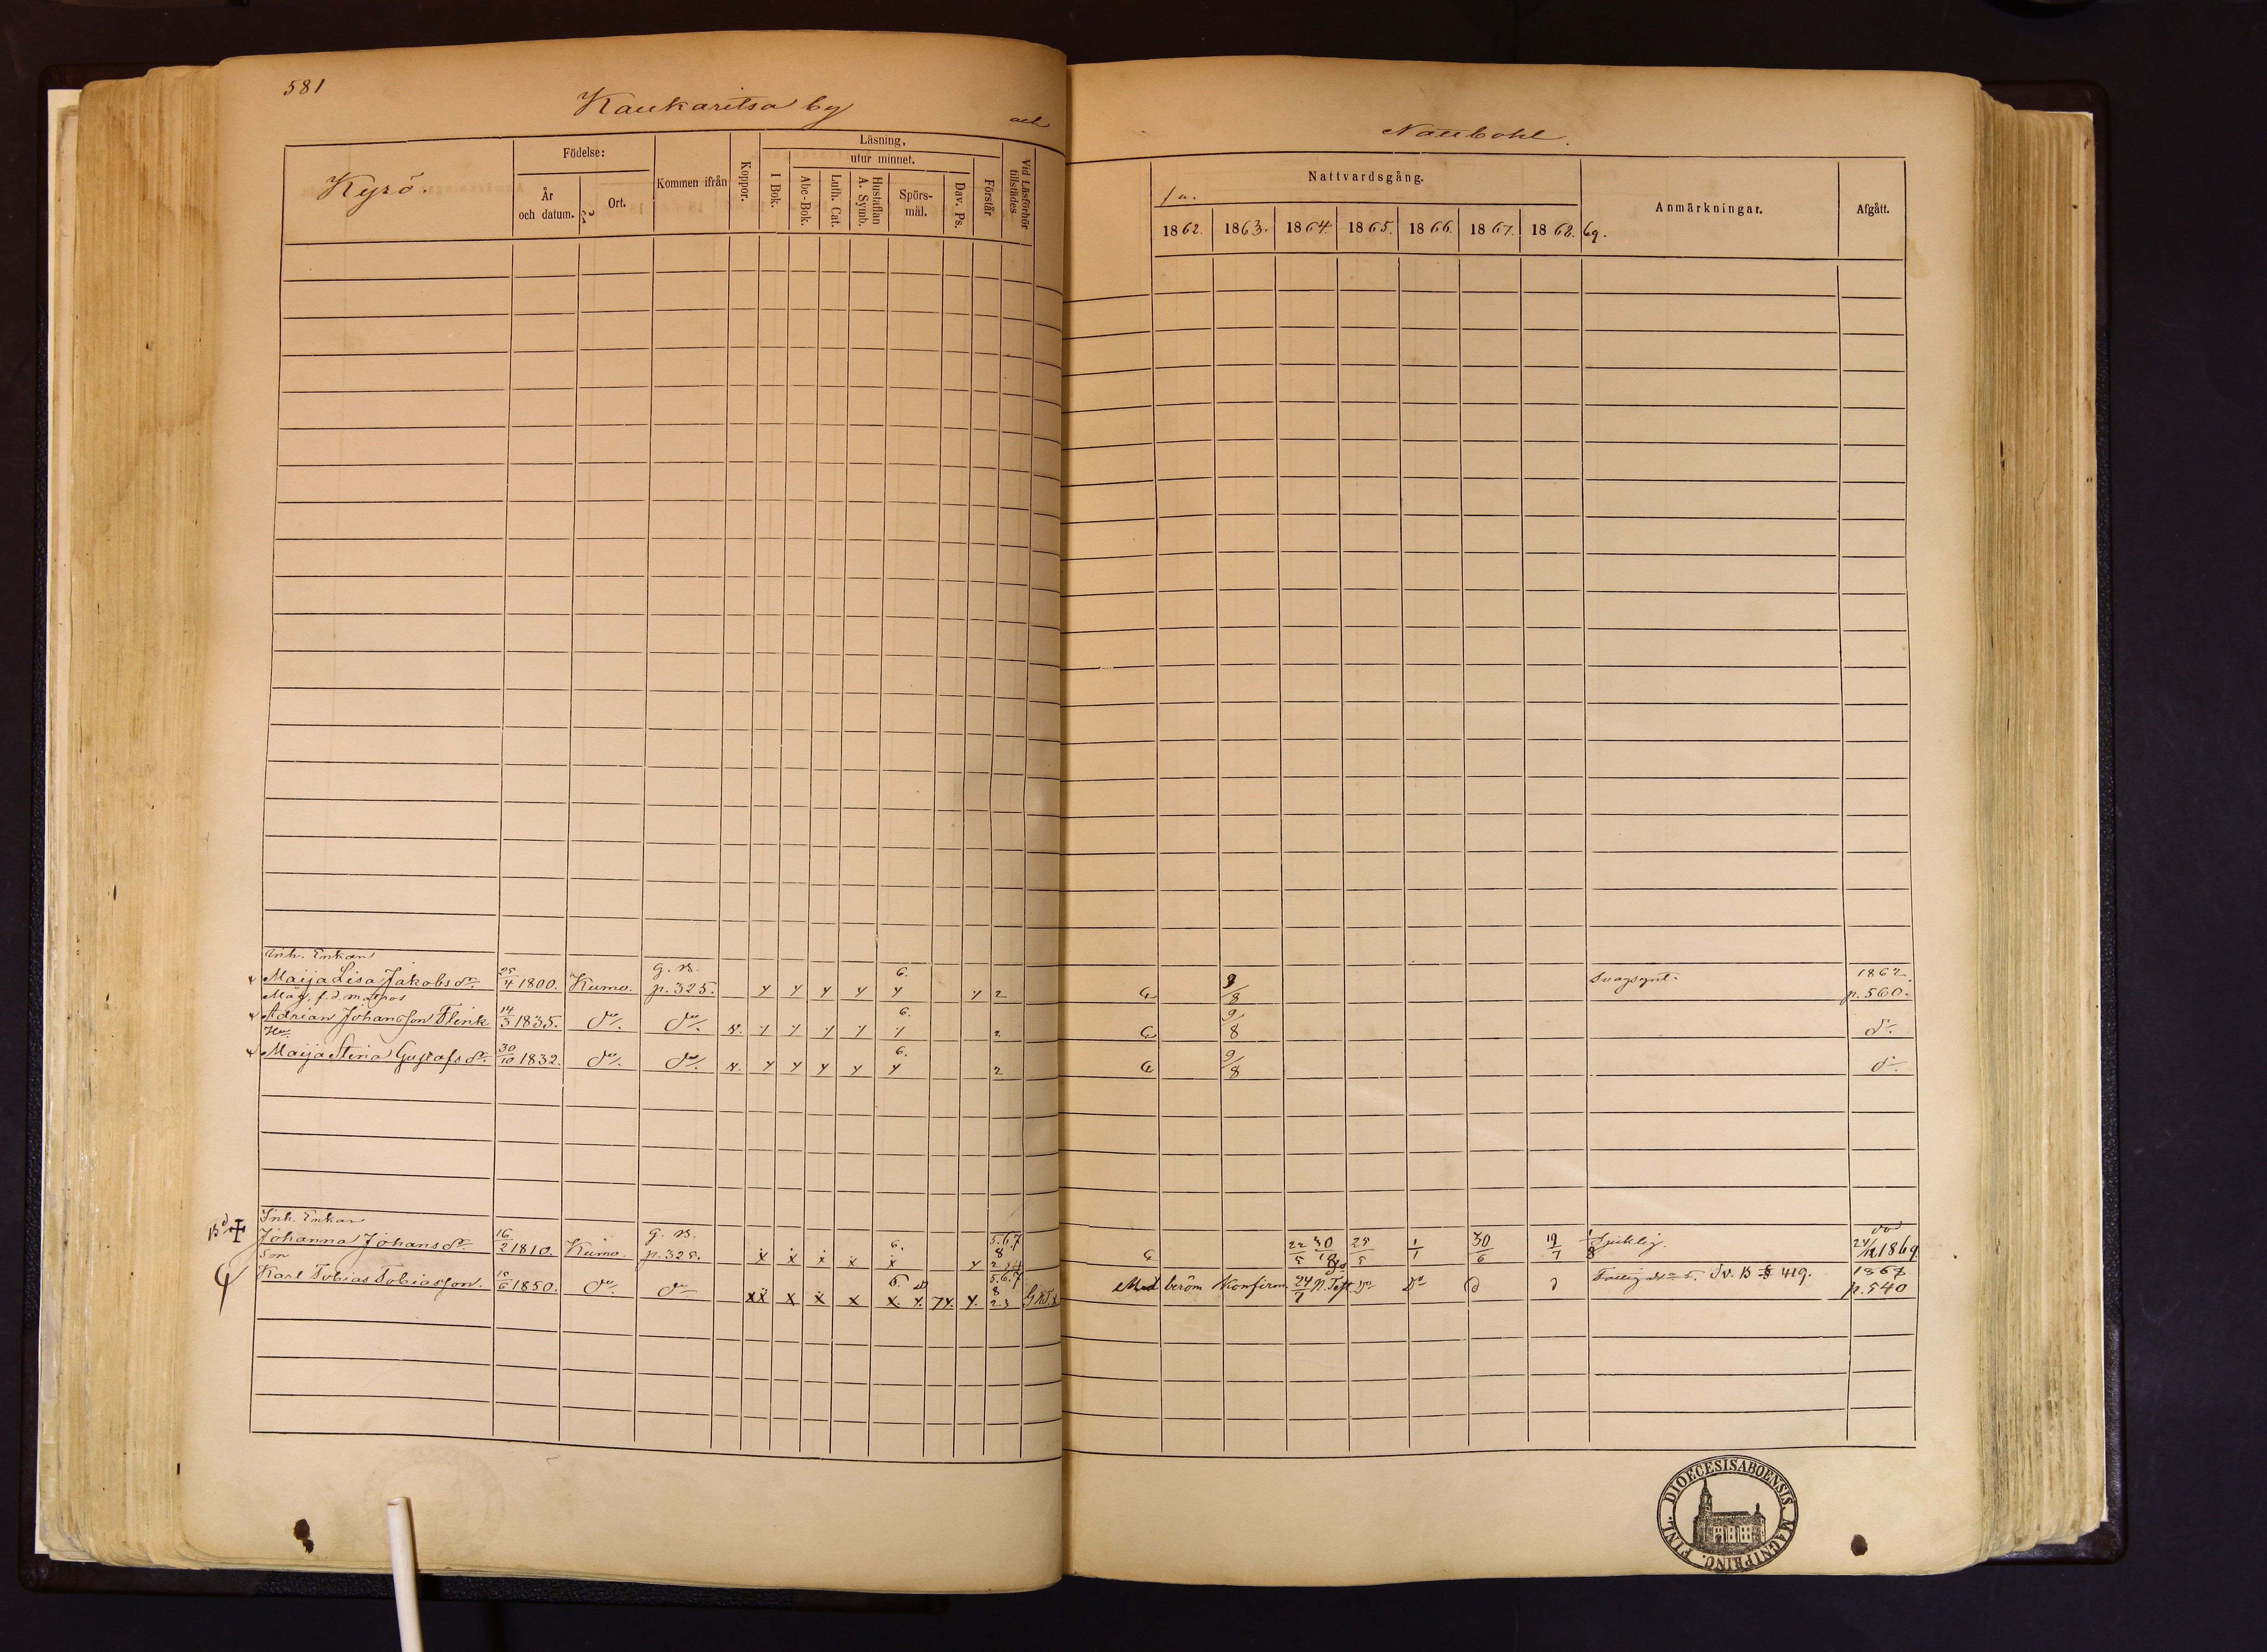 581
Kaukaritsa by
och
Naubohl.
Kyrö.
Födelse:
År och datum.
Ort.
Kommen ifrån
Koppor.
Läsning,
utur minnet.
I Bok.
Abc-Bok.
Luth. Cat.
Hustaflan A. Symb.
Spörsmål.
Dav. Ps.
Förstår
Vid Läsförhör tillstädes
Nattvardsgång.
1862. 1863. 1864. 1865. 1866. 1867. 1868. 69.
Anmärkningar.
Afgått.
Inh. Enkan
Maija Lisa Jakobs dr. 25/4 1800. Kumo. g. B. p. 325. 6. y y y y y y 2 G 9/8 Svagsynt. 1862. p. 560.
Måg, f.d. matros
Adrian Johansson Flink 14/3 1835. do do 6. y y y y y 2 G 9/8 do
Hu
Maija Stina Gustafs dr. 30/10 1832. do do 6. y y y y y 2 G 9/8 do
Inh. Enkan
Johanna Johans dr. 16/2 1810. Kumo. g. B. p. 325. 6. x x x x x y 5.6.7 8 G 22/5 30 25/5 1/1 30/6 19/7 Sjuklig. 24/12 1869
Son
Karl Tobias Tobiasson. 15/6 1850. do do xx x x x x. y. 7 y. y. 5.6.7 8 23 Med beröm Konfirm. 24/7 do do Sv. B 419. 1867 p. 540
FINL. DIOECESIS ABOENSIS MAGNI PRINC.